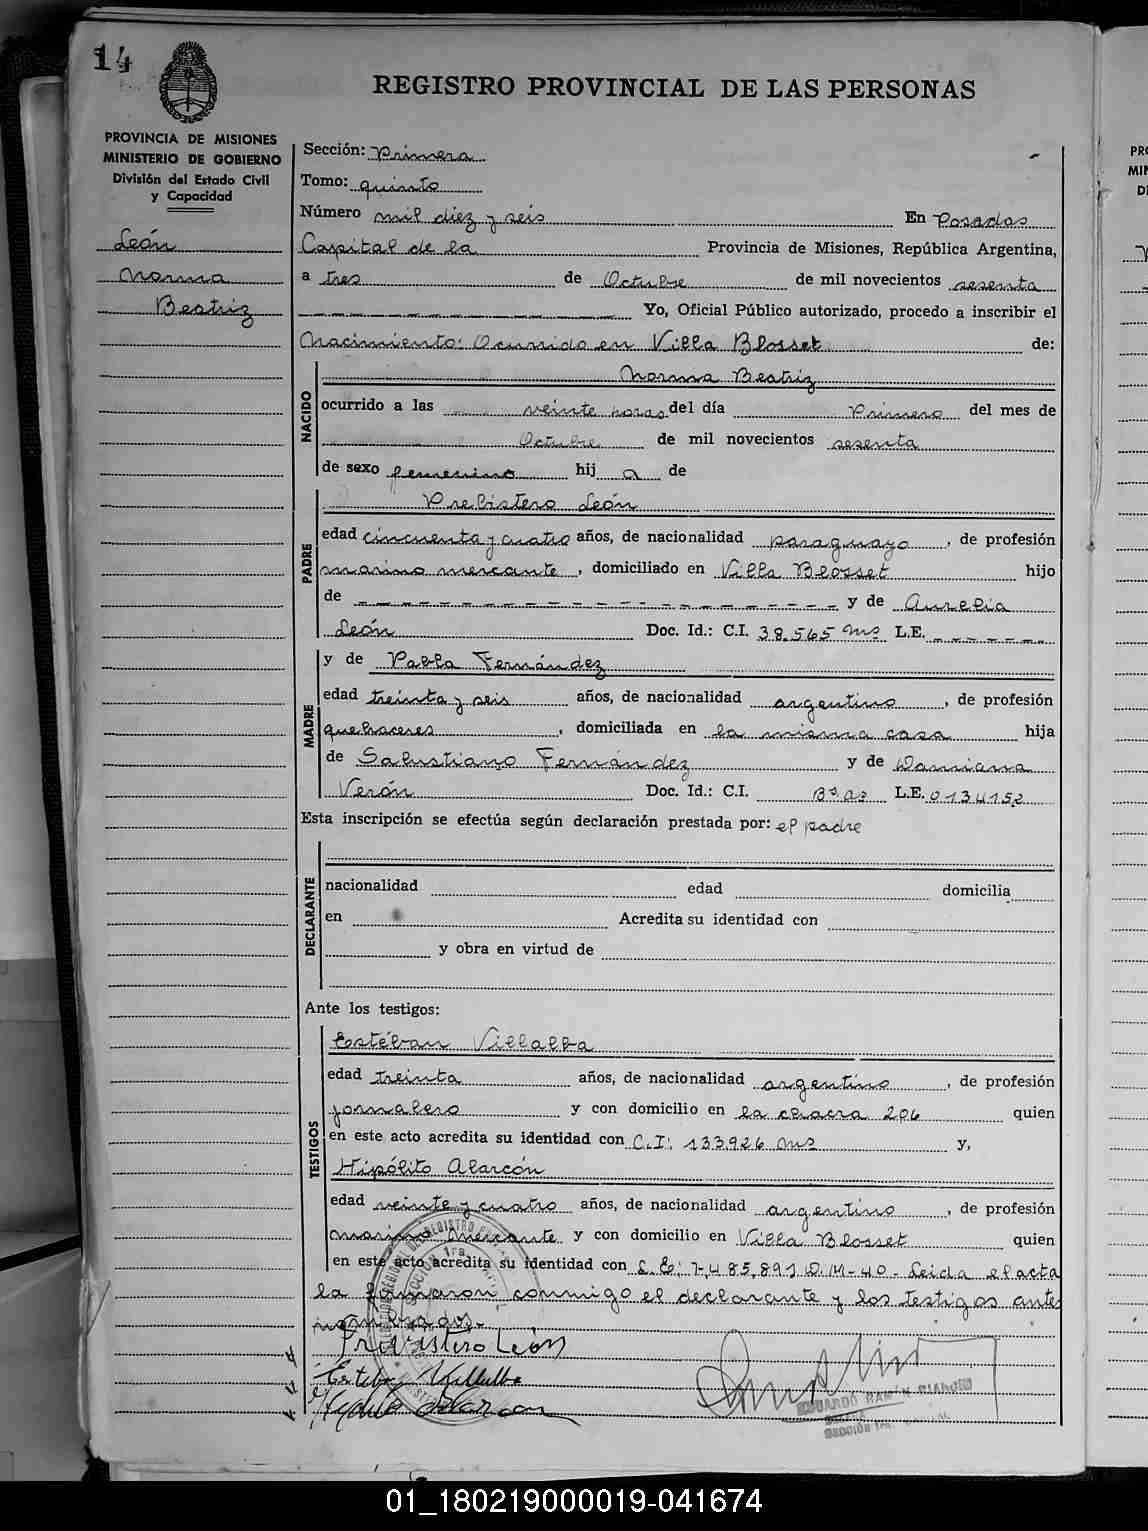 14
REGISTRO PROVINCIAL DE LAS PERSONAS
PROVINCIA DE MISIONES
MINISTERIO DE GOBIERNO
División del Estado Civil
y Capacidad
León
Norma
Beatriz
Sección: Primera
Tomo: quinto
Número mil diez y seis En Posadas
Capital de la Provincia de Misiones, República Argentina,
a tres de Octubre de mil novecientos sesenta
Yo, Oficial Público autorizado, procedo a inscribir el
Nacimiento: Ocurrido en Villa Blosset de:
NACIDO
Norma Beatriz
ocurrido a las veinte horas del día Primero del mes de
Octubre de mil novecientos sesenta
de sexo femenino hij a de
PADRE
Prebístero León
edad cincuenta y cuatro años, de nacionalidad paraguayo, de profesión
marino mercante, domiciliado en Villa Blosset hijo
de y de Aurelia
León Doc. Id.: C.I. 38.565 Mns L.E.
MADRE
y de Pabla Fernández
edad treinta y seis años, de nacionalidad argentino, de profesión
quehaceres, domiciliada en la misma casa hija
de Salustiano Fernández y de Damiana
Verón Doc. Id.: C.I. Bs as L.E. 0134152
Esta inscripción se efectúa según declaración prestada por: el padre
DECLARANTE
nacionalidad edad domicilia
en Acredita su identidad con
y obra en virtud de
Ante los testigos:
TESTIGOS
Estéban Villalba
edad treinta años, de nacionalidad argentino, de profesión
jornalero y con domicilio en la chacra 206 quien
en este acto acredita su identidad con C.I: 133926 Mns y,
Hipólito Alarcón
edad veinte y cuatro años, de nacionalidad argentino, de profesión
marino mercante y con domicilio en Villa Blosset quien
en este acto acredita su identidad con L.E: 7,485,891 D.M-40.- Leida el acta
la firmaron conmigo el declarante y los testigos antes
nombrados.-
Prevístero León
Esteban Villalba
Hipolito Alarcon
EDUARDO RAMON
01_180219000019-041674